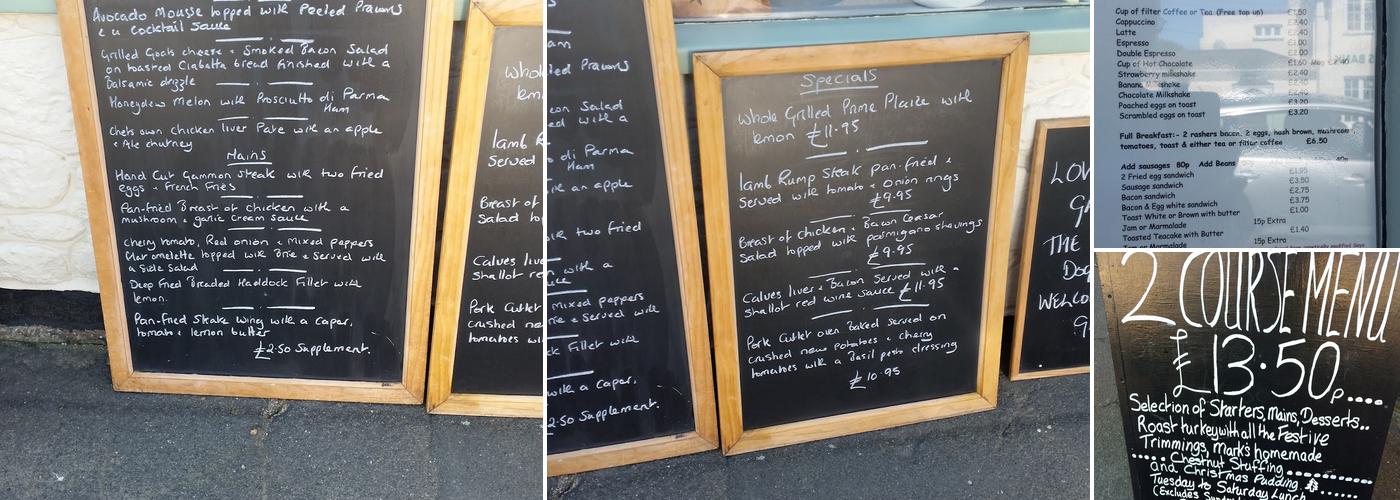 Avocado Mousse topped with Peeled Prawns
& a Cocktail Sauce
Grilled Goats cheese & Smoked Bacon Salad
on toasted Ciabatta bread finished with a
Balsamic drizzle
Honeydew Melon with Prosciutto di Parma
Ham
Chefs own chicken liver Pate with an apple
& Ale chutney
Mains
Hand Cut Gammon Steak with two fried
eggs & French Fries
Pan-fried Breast of Chicken with a
mushroom & garlic cream sauce
Cherry tomato, Red onion & Mixed peppers
omelette topped with Brie & Served with
a Side Salad
Deep Fried Breaded Haddock Fillet with
lemon.
Pan-fried Skate wing with a Caper,
tomato & lemon butter
£2.50 Supplement.
whole
lem
lamb R
Served
Breast of
Salad to
Calves liver
shallot re
Pork Cutlet
crushed new
tomatoes wit
am
led Prawns
con Salad
ed with a
di Parma
Ham
an apple
two fried
with a
mixed peppers
rie & Served with
ck Fillet with
with a Caper,
2.50 Supplement.
Specials
whole Grilled Prime Plaice with
lemon £11.95
lamb Rump Steak pan-fried &
Served with tomato & onion rings
£9.95
Breast of Chicken & Bacon Ceasar
Salad topped with parmigano shavings
£9.95
Calves liver & Bacon Served with a
shallot red wine sauce £11.95
Pork Cutlet oven baked served on
crushed new potatoes & cherry
tomatoes with a Basil pesto dressing
£10.95
LOV
THE
DO
WELCO
Cup of filter Coffee or Tea (Free top up) £1.50
Cappuccino £2.40
Latte £2.40
Espresso £1.00
Double Espresso £2.00
Cup of Hot Chocolate £1.60 Mug £2.40
Strawberry milkshake £2.40
Banana Milkshake £2.40
Chocolate Milkshake £2.40
Poached eggs on toast £3.20
Scrambled eggs on toast £3.20
Full Breakfast:- 2 rashers bacon, 2 eggs, hash brown, mushroom,
tomatoes, toast & either tea or filter coffee £6.50
Add sausages 80p Add Beans 40p
2 Fried egg sandwich £1.95
Sausage sandwich £3.50
Bacon sandwich £2.75
Bacon & Egg white sandwich £3.75
Toast White or Brown with butter £1.00
Jam or Marmalade 15p Extra
Toasted Teacake with Butter £1.40
Jam or Marmalade 15p Extra
2 COURSE MENU
£13.50p.....
Selection of Starters, Mains, Desserts..
Roast turkey with all the Festive
Trimmings, Mark's homemade
Chestnut Stuffing
and Christmas Pudding
Tuesday to Saturday Lunch